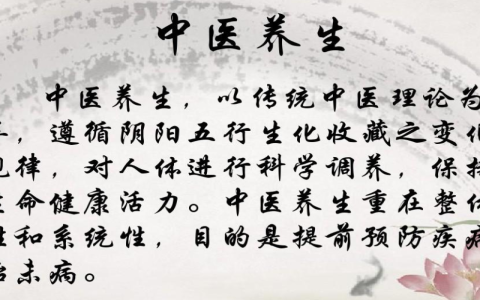 中医养生
中医养生，以传统中医理论为
，遵循阴阳五行生化收藏之变化
律，对人体进行科学调养，保持
命健康活力。中医养生重在整体
性和系统性，目的是提前预防疾病
治未病。